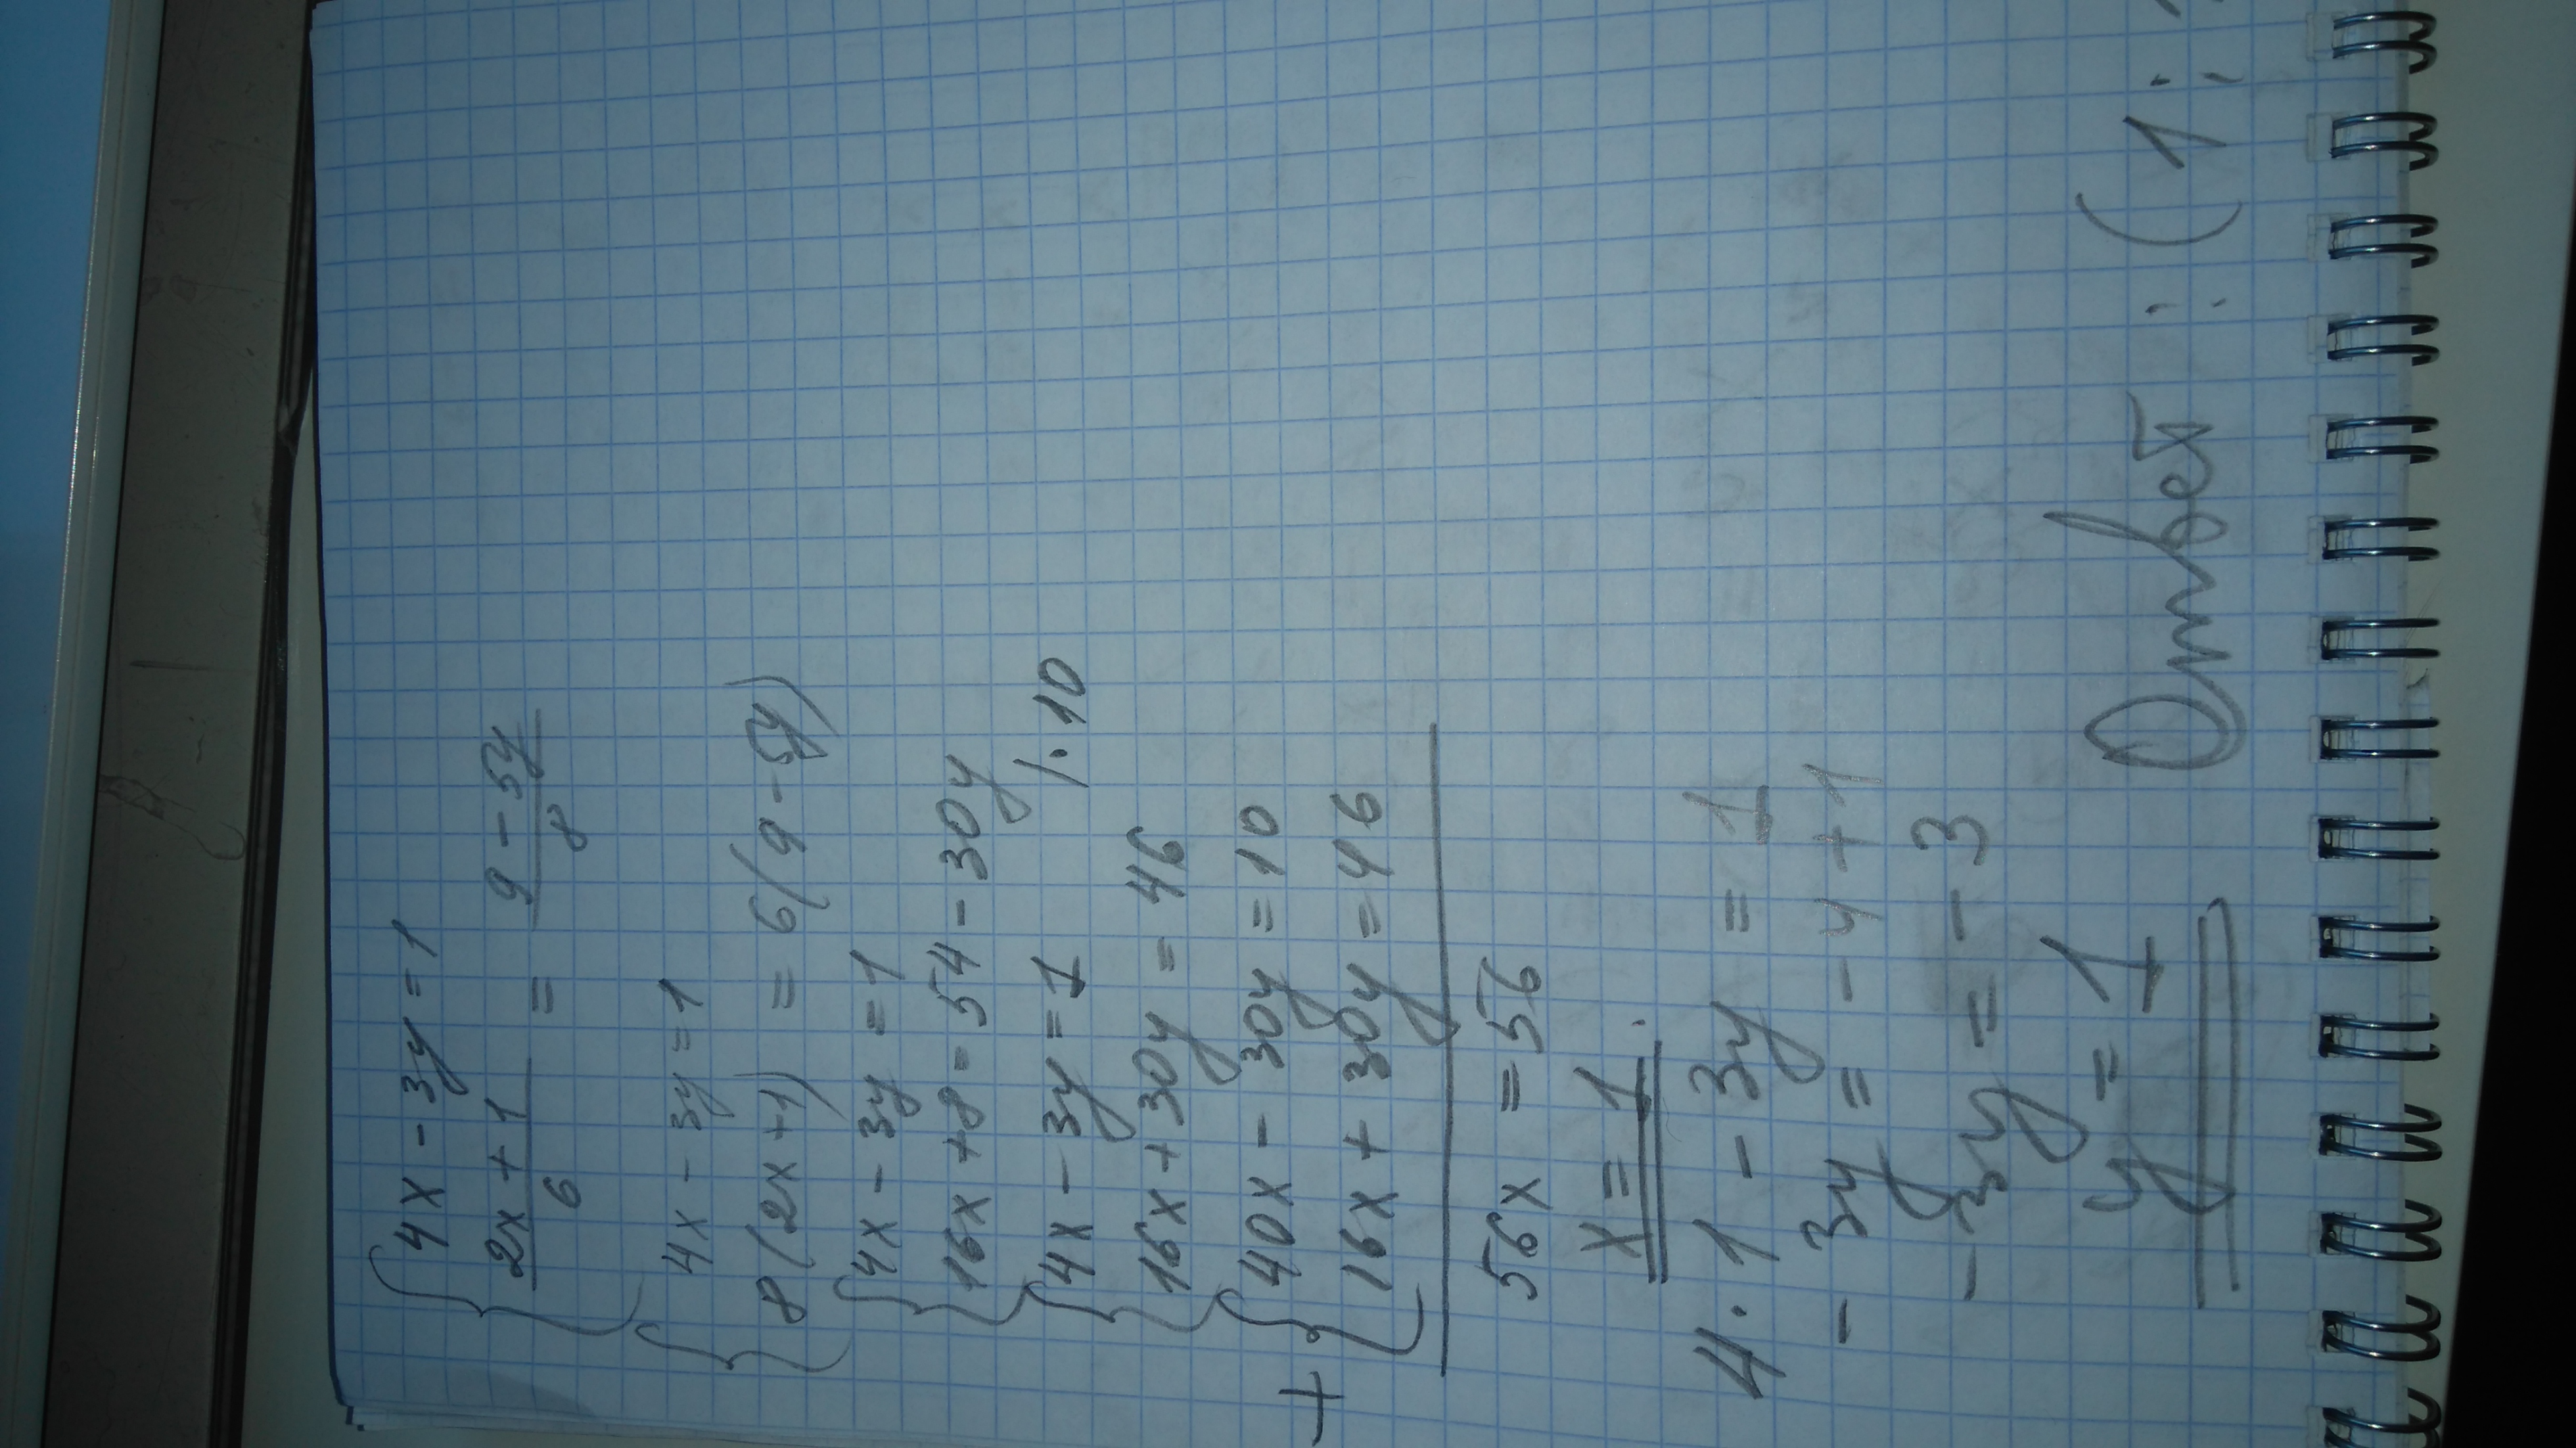 4x - 3y = 1
2x + 1 / 6 = 9 - 5y / 8
4x - 3y = 1
8(2x + 1) = 6(9 - 5y)
4x - 3y = 1
16x + 8 = 54 - 30y
4x - 3y = 1 /·10
16x + 30y = 46
40x - 30y = 10
+ 16x + 30y = 46
56x = 56
x = 1
4·1 - 3y = 1
- 3y = - 4 + 1
- 3y = - 3
y = 1
Ответ: (1;